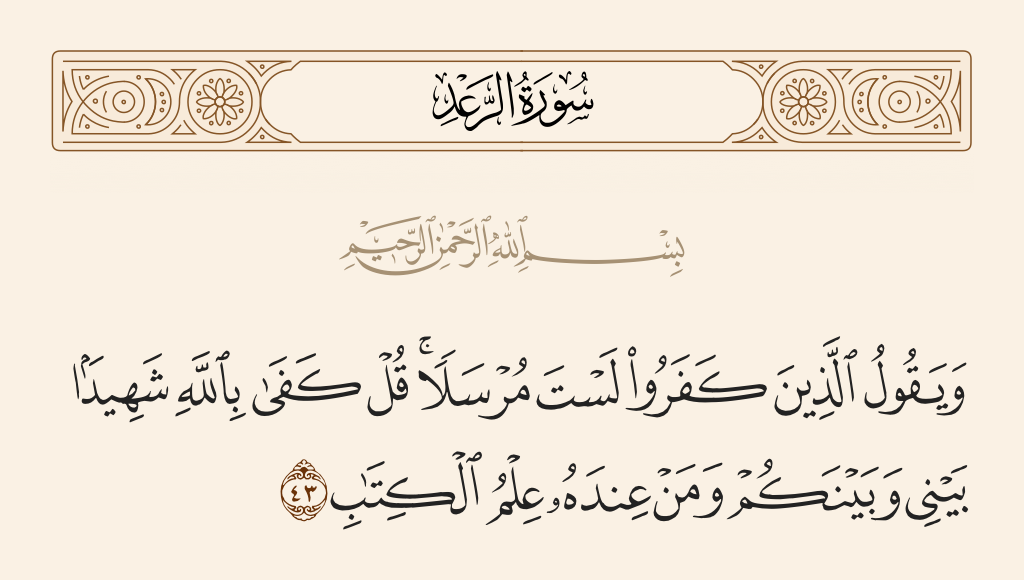 سُورَةُ الرَّعْدِ
بِسْمِ ٱللَّهِ ٱلرَّحْمَٰنِ ٱلرَّحِيمِ
وَيَقُولُ ٱلَّذِينَ كَفَرُوا۟ لَسْتَ مُرْسَلًا ۚ قُلْ كَفَىٰ بِٱللَّهِ شَهِيدًۢا
بَيْنِى وَبَيْنَكُمْ وَمَنْ عِندَهُۥ عِلْمُ ٱلْكِتَٰبِ ٤٣